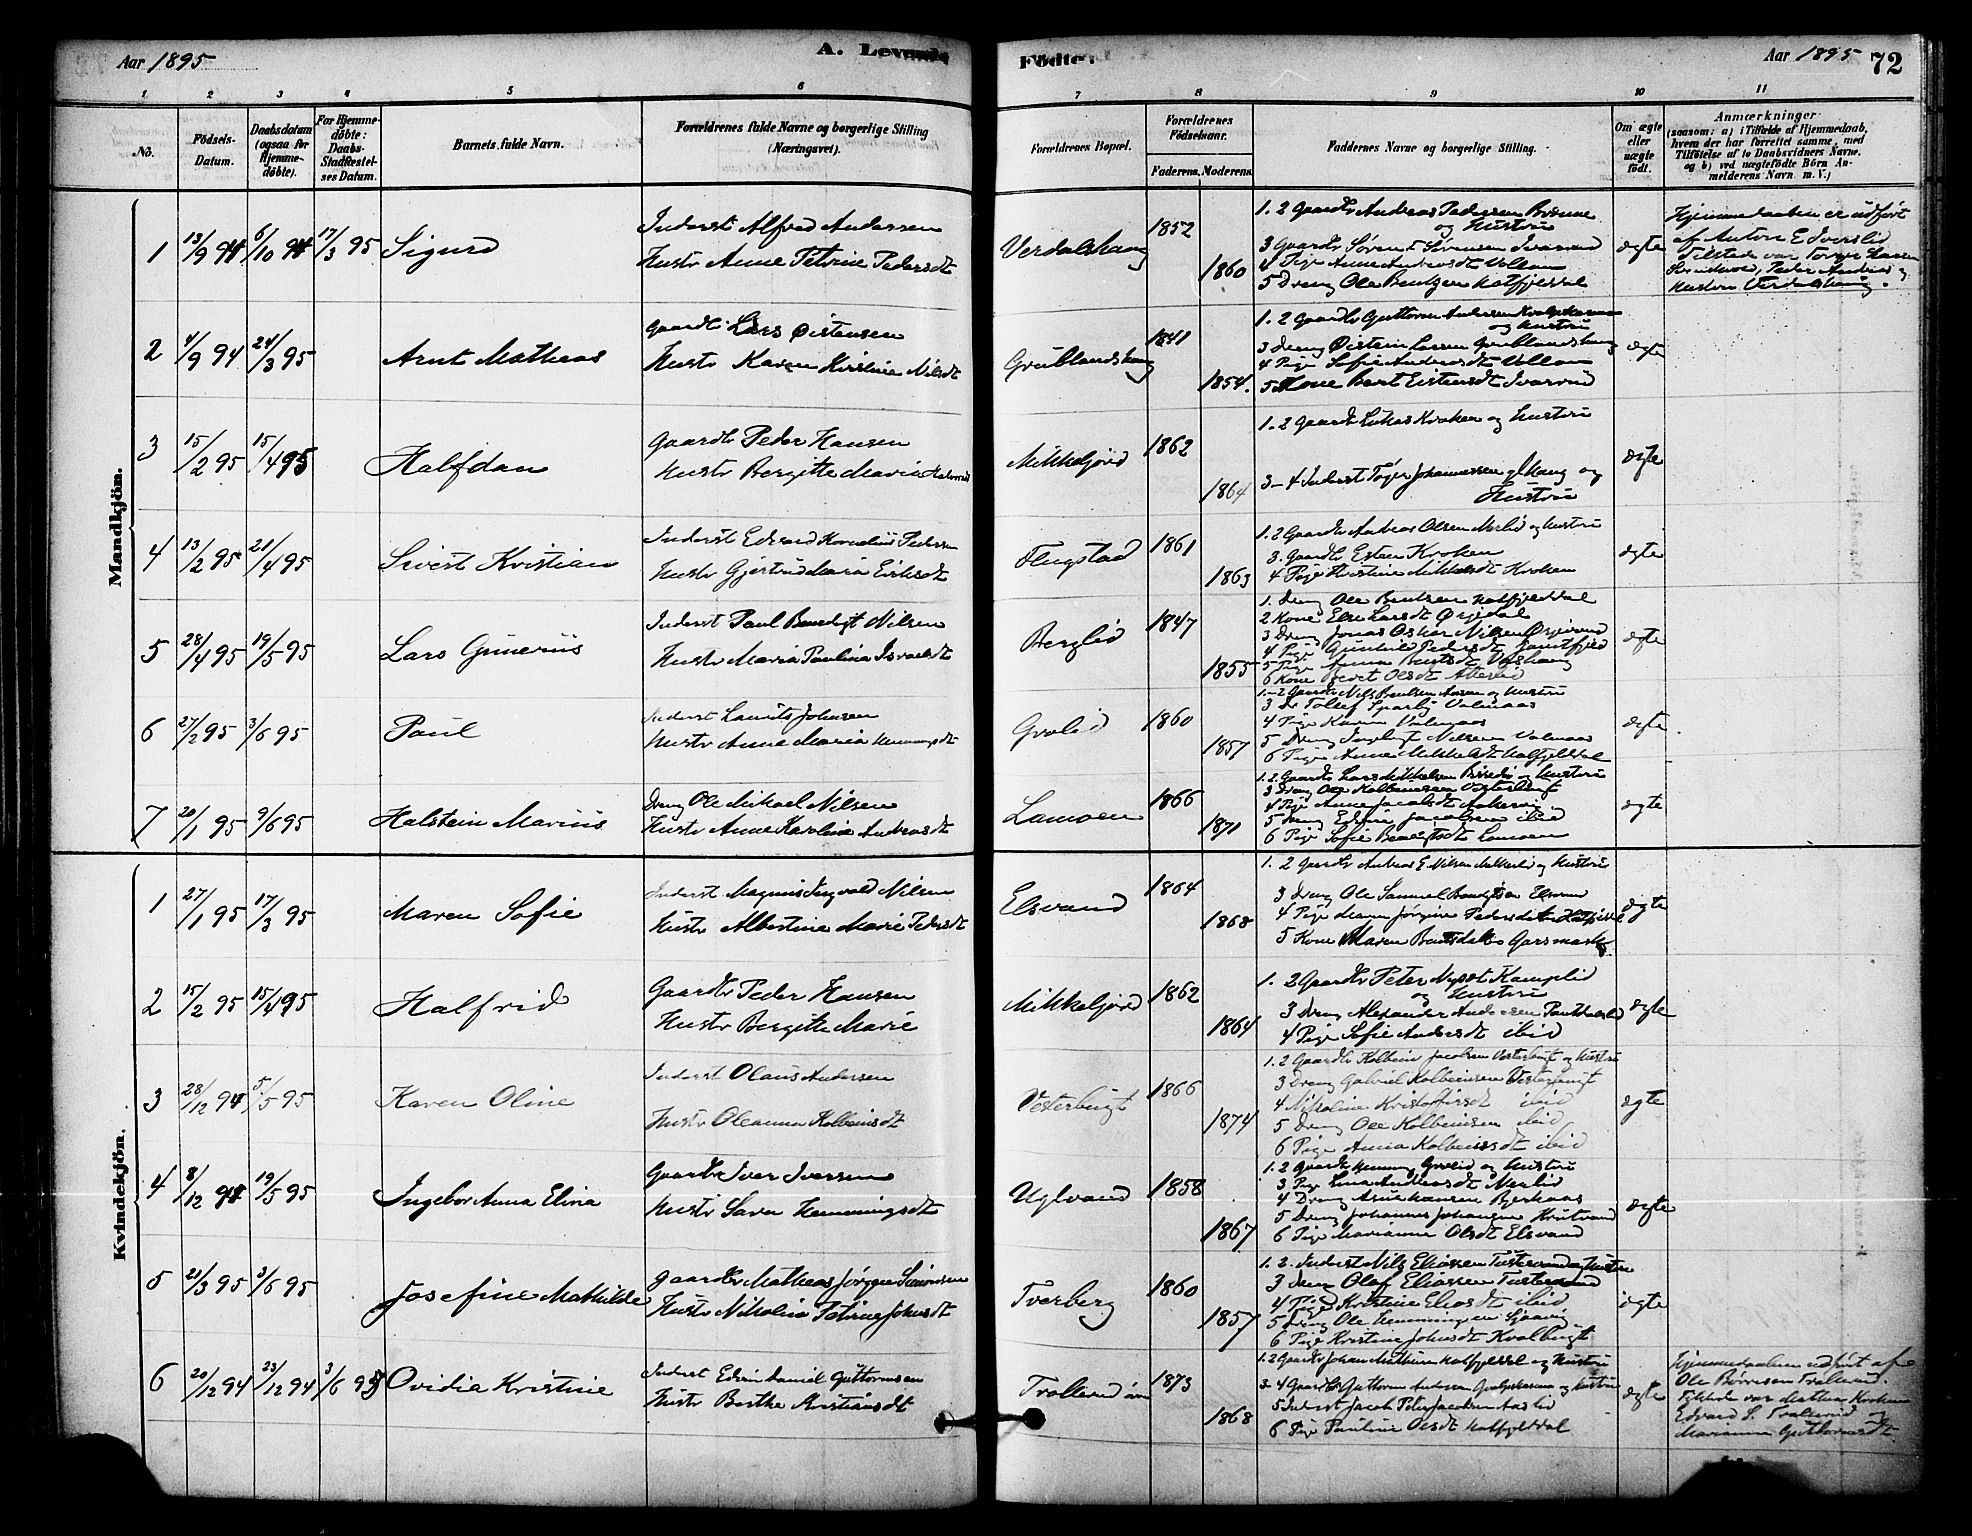 Aar 1895
A. Levende
Fødte.
Aar 1895
72
1 2 3 4 5 6 7 8 9 10 11
No.
Fødsels-Datum.
Daabsdatum (ogsaa for Hjemme-døbte).
For Hjemme-døbte: Daabs-Stadfæstel-ses Datum.
Barnets fulde Navn.
Forældrenes fulde Navne og borgerlige Stilling (Næringsvei).
Forældrenes Bopæl.
Forældrenes Fødselsaar.
Faderens. Moderens.
Faddernes Navne og borgerlige Stilling.
Om ægte eller uægte født.
Anmærkninger
(saasom: a) i Tilfælde af Hjemmedaab, hvem der har forrettet samme, med Tilføielse af to Daabsvidners Navne. og b) ved uægtefødte Børn An-melderens Navn m. V.)
Mandkjøn.
1 13/9 94 6/10 94 17/3 95 Sigurd
Inderst Alfred Andersen
Hustr Anne Petrine Pedersdt
Verdalshaug 1852 1860
1. 2 Gaardbr Andreas Pedersen
og Hustru
3 Gaardbr Søren Sørensen Ivarrud
4 Pige Anne Andersdt Vollan
5 Dreng Ole Bentzen Hatfjeldal
ægte
Hjemmedaaben er udført
af Anton E
Tilstede var
Peder Andreas og
Hustru Verdalshaug.
2 4/9 94 24/3 95 Arnt Matheas
Gaardbr Lars Øistensen
Hustr Karen Kristine Nilsdt
Grublandshaug 1841 1854.
1. 2 Gaardbr Guttorm Andersen
og Hustru
3 Dreng Øistein Larsen Grublandshaug
4 Pige Sofie Andersdt Vollan
5 Kone Beret Eistensdt Ivarrud
ægte
3 15/2 95 15/4 95 Halfdan
Gaardbr Peder Hansen
Hustr Bergitte Maria
Mikkeljord 1862 1864
1. 2 Gaardbr Lukas Kroken og Hustru
3-4 Inderst Tøger Johannessen og
Hustru
ægte
4 13/2 95 21/4 95 Sivert Kristian
Inderst Edvard Kornelius Pedersen
Hustr Gjertrud Maria Eriksdt
Flugstad 1861 1863
1. 2 Gaardbr Andreas Olsen Merlid og Hustru
3. Gaardbr Esten Kroken
4 Pige Kristine Mikkelsdt Kroken
ægte
5 28/4 95 19/5 95 Lars Gunerius
Inderst Paul Benedigt Nilsen
Hustr Maria Paulina Israelsdt
Berglid 1847 1855
1. Dreng Ole Bentzen Hatfjelddal
2 Kone Else Larsdt
3 Dreng Jonas Oskar Nilsen
4 Pige Gunhild Pedersdt
5 Pige Anna
6 Kone Beret Olsdt
ægte
6 27/2 95 3/6 95 Paul
Inderst Laurits Johnsen
Hustr Anne Maria Hemmingsdt
Grolid 1860 1857
1-2 Gaardbr Nils Paulsen og Hustru
3 Tollef Sparby Valmaas
4 Pige Karen Valmaas
5 Dreng Ingebrigt Nilsen Valmaas
6 Pige Anne Mikkelsdt Hatfjelddal
ægte
7 20/1 95 9/6 95 Halstein Marius
Dreng Ole Mikael Nilsen
Hustr Anne Karolina Andreasdt
Lamoen 1866 1871
1. 2. Gaardbr Lars Mikkelsen og Hustru
3 Dreng Ole Kolbeinsen Vesterbugt
4 Pige Anne Jacobsdt
5 Dreng Edvin Jacobsen ibid
6 Pige Sofie Benedigtsdt Lamoen
ægte
Kvindekjøn.
1 27/1 95 17/3 95 Maren Sofie
Inderst Magnus Ingvald Nilsen
Hustr Albertine Marie Pedersdt
Elsvand 1864 1868
1. 2 Gaardbr Andreas E. Nilsen og Hustru
3 Dreng Ole Samuel Elsvand
4 Pige Maren Jørgine Pedersdt
5 Kone Maren
ægte
2 15/2 95 15/4 95 Halfrid
Gaardbr Peder Hansen
Hustr Bergitte Marie
Mikkeljord 1862 1864
1. 2 Gaardbr Peter Kamplid
og Hustru
3 Dreng Alexander Andersen
4 Pige Sofie Andersdt ibid
ægte
3 28/12 94 5/5 95 Karen Oline
Inderst Olaus Andersen
Hustr Oleanna Kolbeinsdt
Vesterbugt 1866 1874
1. 2 Gaardbr Kolbein Jacobsen Vesterbugt og Hustru
3 Dreng Gabriel Kolbeinsen Vesterbugt
4 Nikoline Kristoffersdt ibid
5 Dreng Ole Kolbeinsen ibid
6 Pige Anna Kolbeinsdt ibid
ægte
4 8/12 94 19/5 95 Ingebor Anna Elina
Gaardbr Iver Iversen
Hustr Sara Hemmingsdt
Uglvand 1858 1867
1. 2 Gaardbr Hemming Grolid og Hustru
3 Pige Lina Andreasdt Merlid
4 Dreng
5 Dreng Johannes Johansen
6 Pige Marianna Olsdt Elsvand
ægte
5 21/3 95 3/6 95 Josefine Mathilde
Gaardbr Matheas Jørgen Simonsen
Hustr Nikolina Petrine Johnsdt
Tverberg 1860 1857
1. 2. Inderst Nils Eliassen Tustervand og Hustru
3 Dreng Olaf Eliassen Tustervand
4 Pige Kristine Eliasdt ibid
5 Dreng Ole Hemmingsen
6 Pige Kristine Johnsdt Kvalbugt
ægte
6 20/12 94 23/12 94 3/6 95 Ovidia Kristine
Inderst Edvin Daniel Guttormsen
Hustr Berthe Kristiansdt
Trollerud 1873 1868
1. 2 Gaardbr Johan Hatfjeldal og Hustru
3-4 Gaardbr Guttorm Andersen og Hustru
5 Inderst Jacob Peter Jacobsen
6 Pige Pauline Olsdt Hatfjelddal
ægte
Hjemmedaaben udført af
Ole Børresen Trollerud.
Tilstede var Mathea Kroken
Edvard S. Trollerud og
Marianna Guttormsdt.